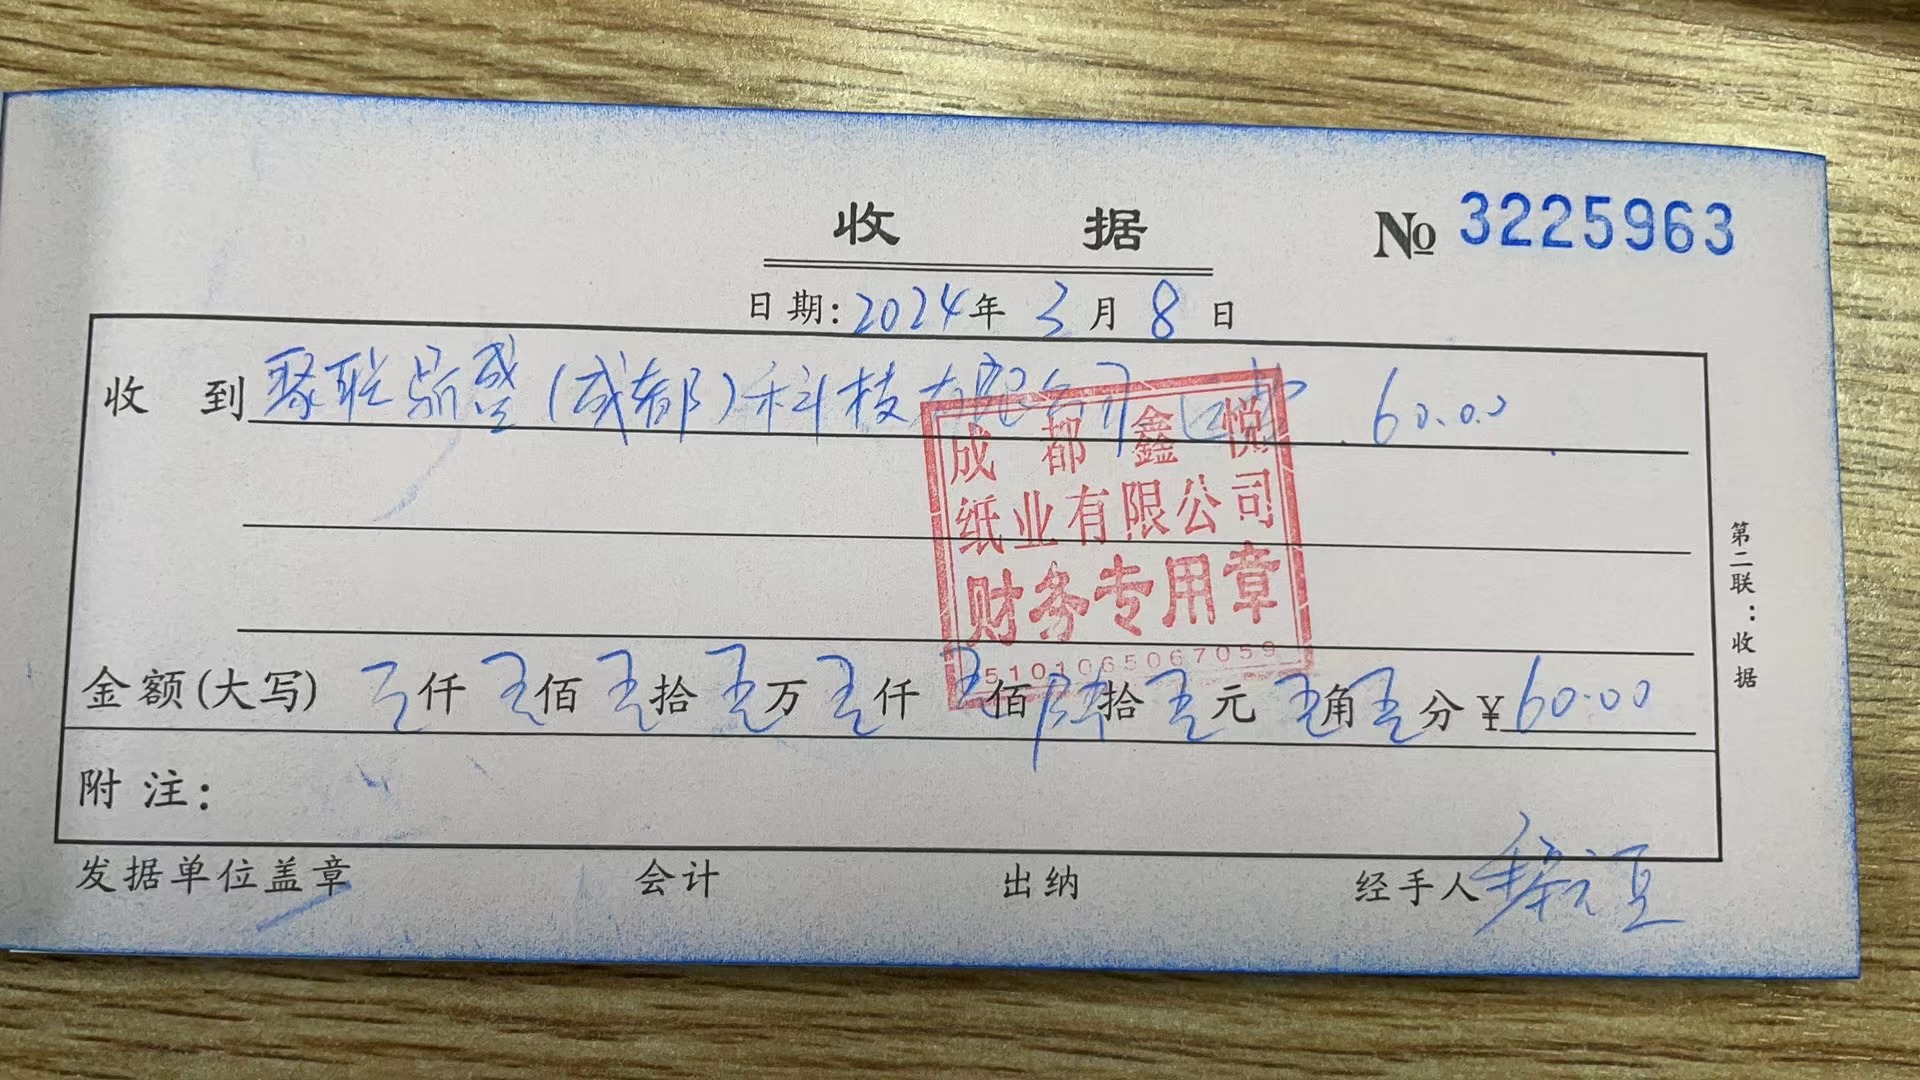 收 据
№ 3225963
日期: 2024年 3月 8日
收 到 聚联鼎盛(成都)科技有限公司 60.00
成都鑫悦
纸业有限公司
财务专用章
5101065067059
金额(大写) 仟 佰 拾 万 仟 佰 陆拾 元 角 分 ¥60.00
附 注:
发据单位盖章 会计 出纳 经手人
第二联:收据